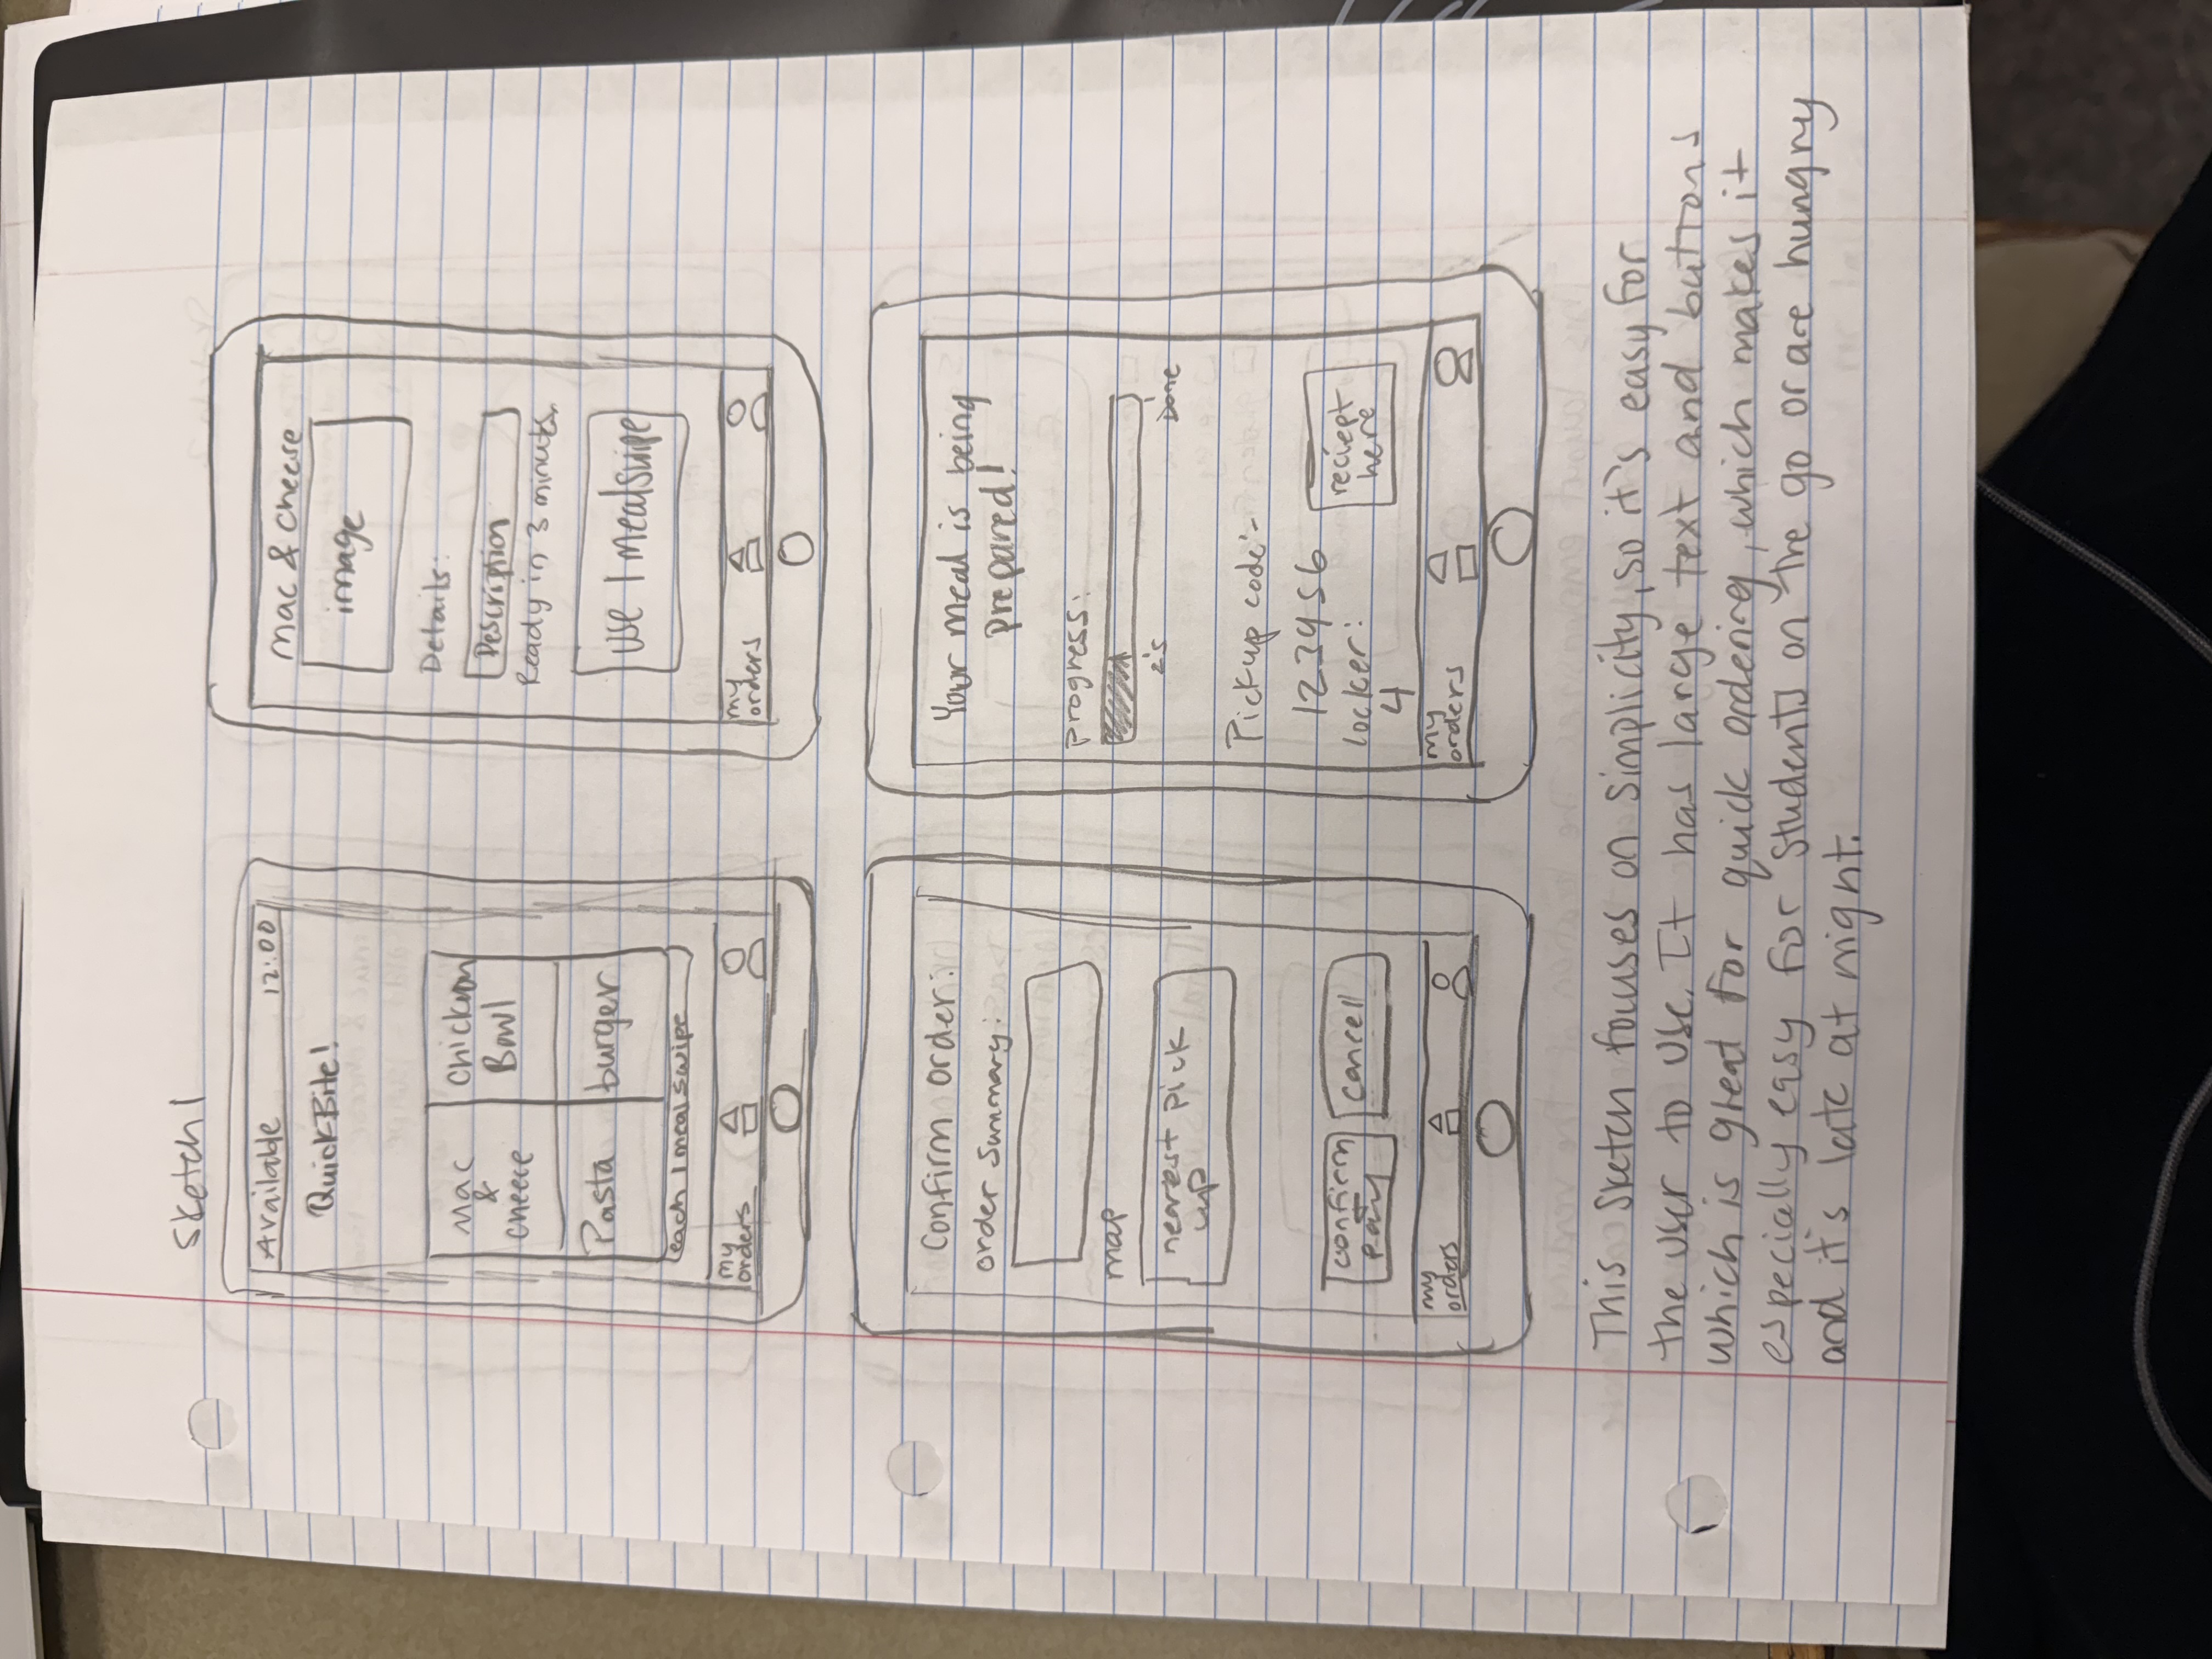 Sketch 1
Available 12:00
QuickBite!
Mac
&
cheece
Chicken
Bowl
Pasta
burger
each 1 meal swipe
my
orders
Mac & Cheese
image
Details:
Description
Ready in 3 minutes
Use 1 mealswipe
my
orders
Confirm order:
order summary:
map
nearest pick
up
confirm
pay
cancell
my
orders
Your meal is being
prepared!
progress:
Done
Pickup code:-
123456
locker:
4
reciept
here
my
orders
This sketch focuses on simplicity, so it's easy for
the user to use. It has large text and buttons
which is great for quick ordering, which makes it
especially easy for students on the go or are hungry
and it's late at night.